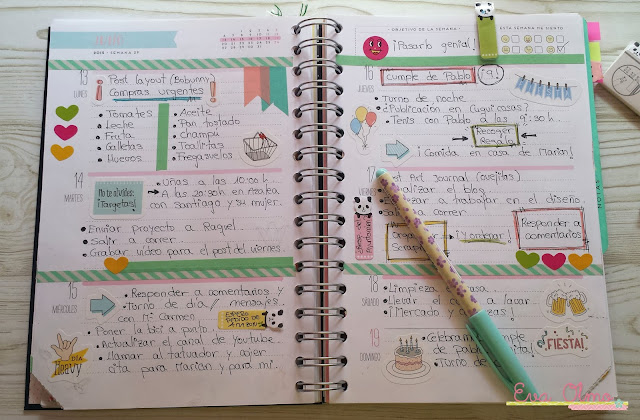 MAYO
OBJETIVO DE LA SEMANA
¡Pasarlo genial!
ESTA SEMANA ME SIENTO
13
LUNES
! Post layout (Bobunny) !
Compras urgentes
• Tomates
• Leche
• Fruta
• Galletas
• Huevos
• Aceite
• Pan tostado
• Champú
• Toallitas
14
MARTES
No te olvides:
¡Tarjetas!
• Uñas a las 10:00 h...
• A las 20:30h en
Santiago y su mujer.
• Enviar proyecto a Raquel...
• Salir a correr...
• Grabar vídeo para el post del viernes.
15
MIÉRCOLES
• Responder a comentarios y
mensajes
• Turno de día
con Mª Carmen
ESPERO
PEDIDO DE
AMAZON!
DÍA
Heavy
• Poner la bici a punto.
• Actualizar el canal de youtube...
• Llamar al tatuador y coger
cita para Marian y para mi.
16
JUEVES
Cumple de Pablo ¡9!
• Turno de noche
• ¿Publicación en
• Tenis con Pablo a las 9:30h...
Recoger
Regalo
¡Comida en casa de Marian!
17
Post Art Journal (ovejitas)
Actualizar el blog...
Empezar a trabajar en el diseño
Salir a correr
Organizar
Scrap
¡y ordenar!
Responder a
comentarios
18
SÁBADO
• Limpieza casa
• Llevar el coche a lavar
¡Mercado y cañas!
19
DOMINGO
• Celebramos cumple
de Pablo
• Turno de
¡FIESTA!
Eva Olmo